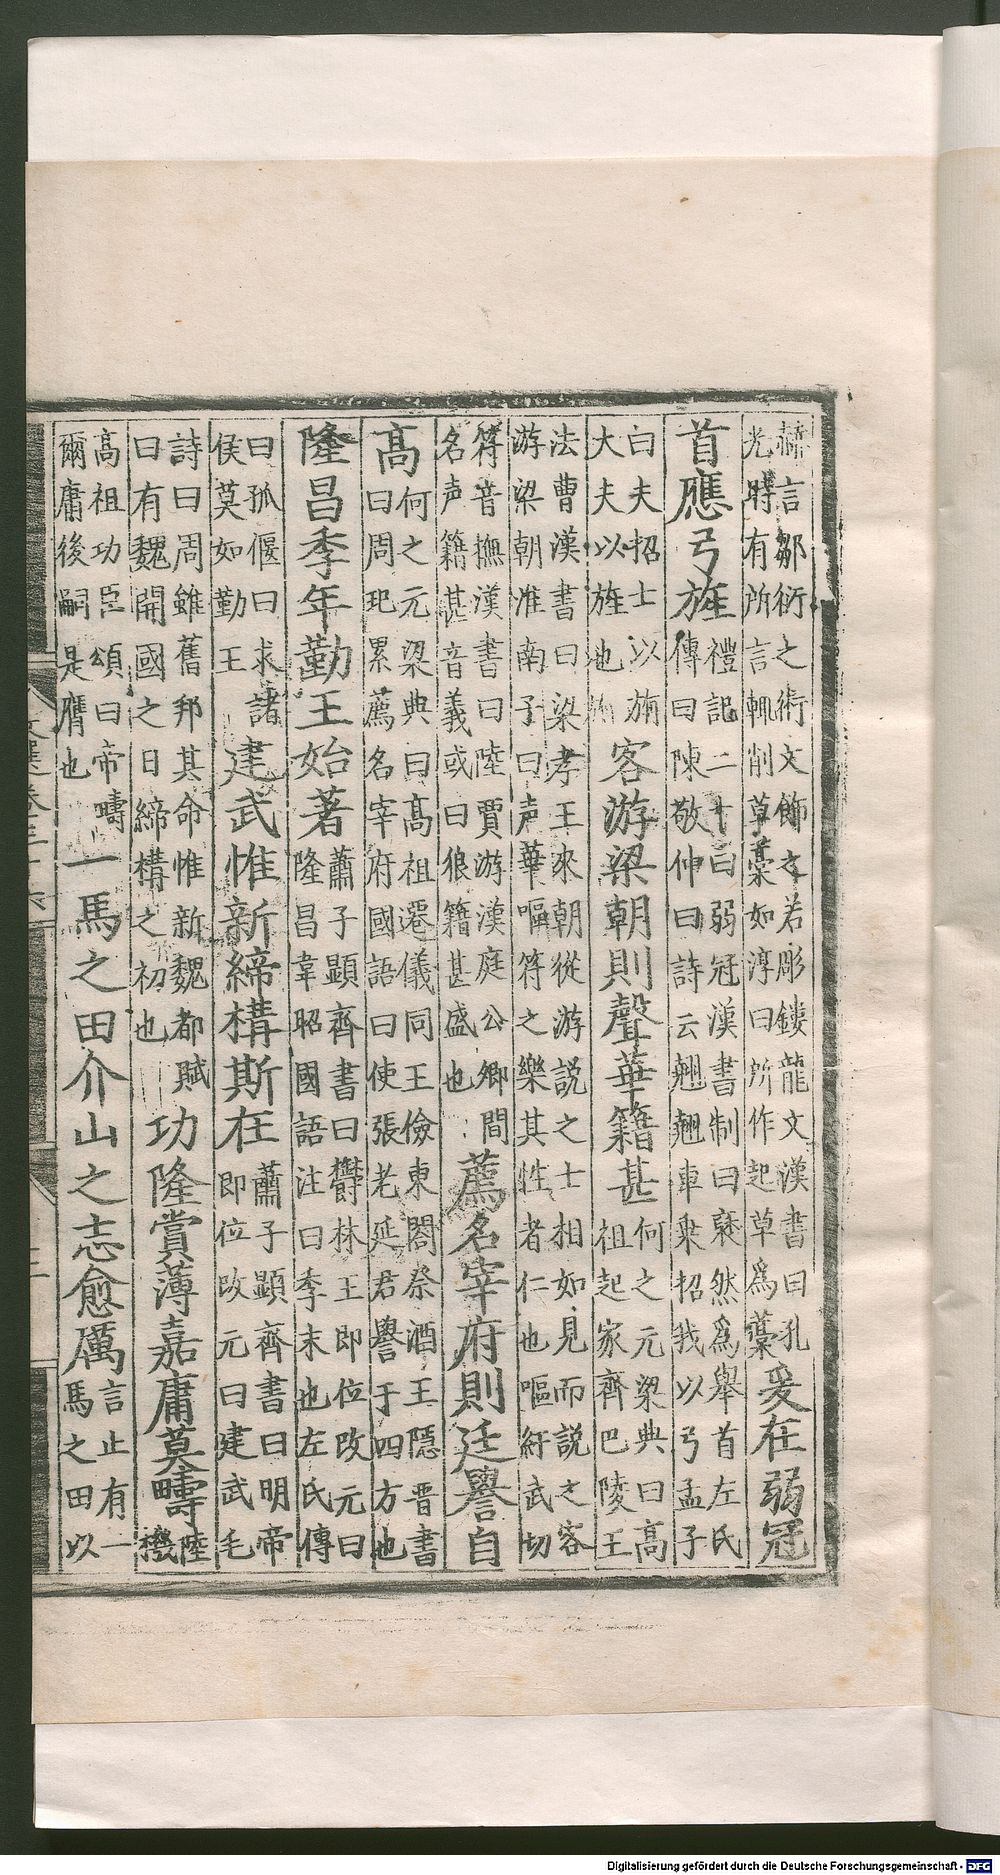 赫言鄒衍之術文飾之若彫鏤龍文漢書曰孔
光時有所言輒削草藁如淳曰所作起草爲藁
爰在弱冠
首應弓旌
禮記二十曰弱冠漢書制曰裦然爲舉首左氏
傳曰陳敬仲曰詩云翹翹車乗招我以弓孟子
曰夫招士以旃
大夫以旌也
客游梁朝則聲華籍甚
何之元梁典曰高
祖起家齊巴陵王
法曹漢書曰梁孝王來朝從游説之士相如見而説之客
游梁朝淮南子曰声華嘔符之樂其性者仁也嘔紆武切
符音撫漢書曰陸賈游漢庭公卿間
名声籍甚音義或曰狼籍甚盛也
薦名宰府則延譽自
高
何之元梁典曰高祖遷儀同王儉東閤祭酒王隱晉書
曰周玘累薦名宰府國語曰使張老延君譽于四方也
隆昌季年勤王始著
蕭子顯齊書曰欝林王即位改元曰
隆昌韋昭國語注曰季末也左氏傳
曰狐偃曰求諸
侯莫如勤王
建武惟新締構斯在
蕭子顯齊書曰明帝
即位改元曰建武毛
詩曰周雖舊邦其命惟新魏都賦
曰有魏開國之日締構之初也
功隆賞薄嘉庸莫疇
陸
機
高祖功臣頌曰帝疇
爾庸後嗣是膺也
一馬之田介山之志愈厲
言止有一
馬之田以
Digitalisierung gefördert durch die Deutsche Forschungsgemeinschaft - DFG